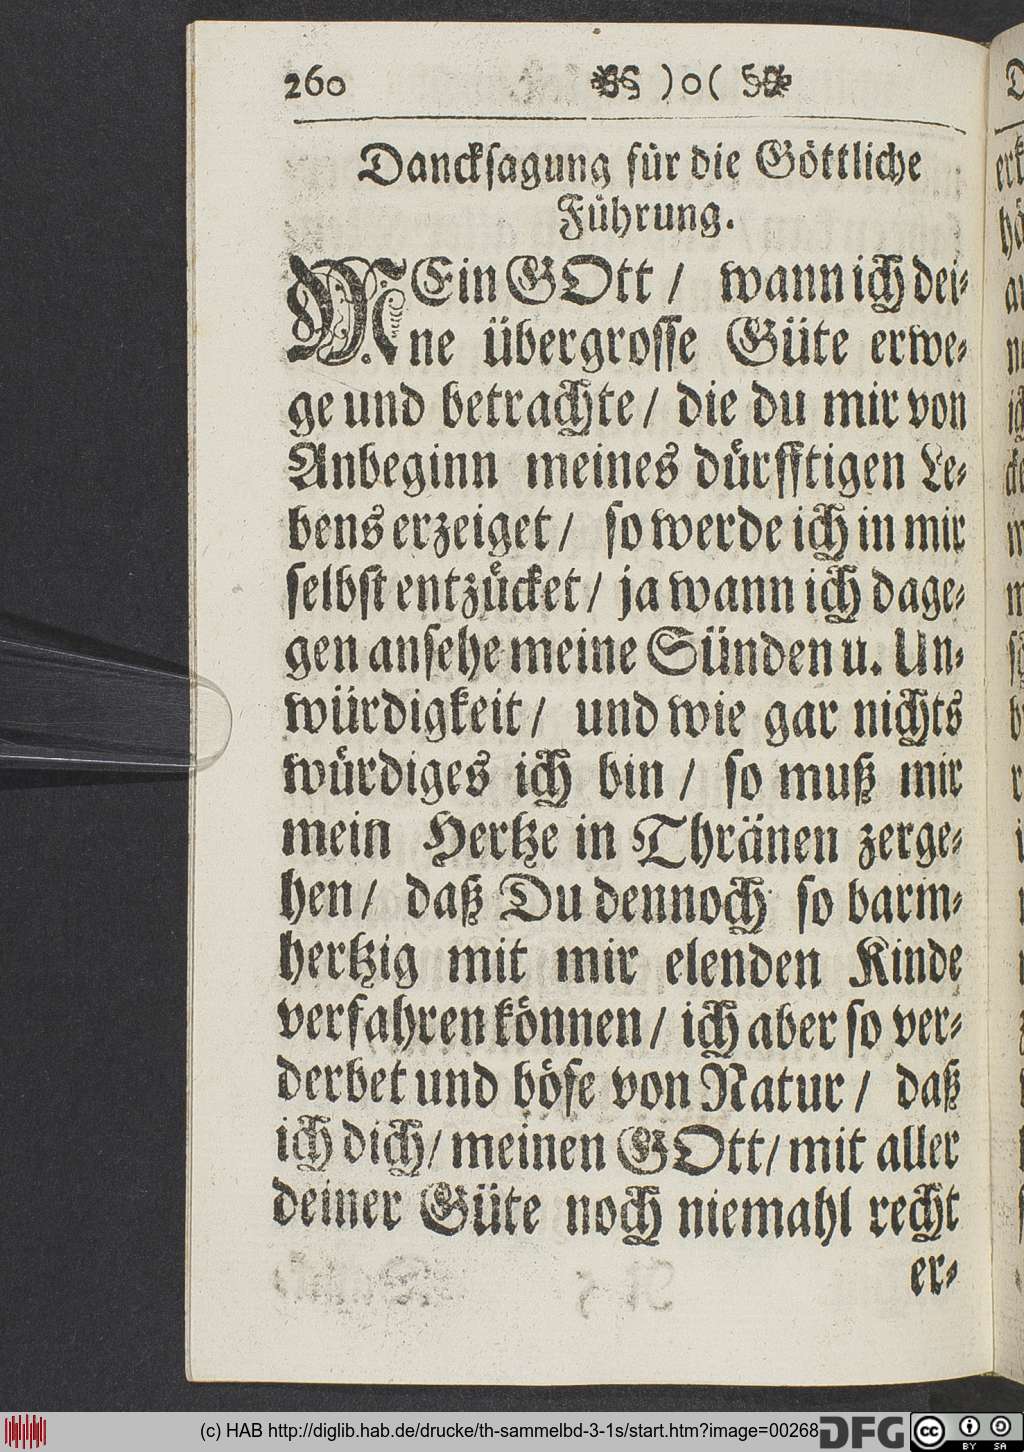 260 )o(
Danckſagung für die Göttliche
Führung.
MEin GOtt / wann ich dei⸗
ne übergroſſe Güte erwe⸗
ge und betrachte / die du mir von
Anbeginn meines dürfftigen Le⸗
bens erzeiget / ſo werde ich in mir
ſelbſt entzücket / ja wann ich dage⸗
gen anſehe meine Sünden u. Un⸗
würdigkeit / und wie gar nichts
würdiges ich bin / ſo muß mir
mein Hertze in Thränen zerge⸗
hen / daß Du dennoch ſo barm⸗
hertzig mit mir elenden Kinde
verfahren können / ich aber ſo ver⸗
derbet und böſe von Natur / daß
ich dich / meinen GOtt / mit aller
deiner Güte noch niemahl recht
er⸗
(c) HAB http://diglib.hab.de/drucke/th-sammelbd-3-1s/start.htm?image=00268
DFG
cc
BY SA